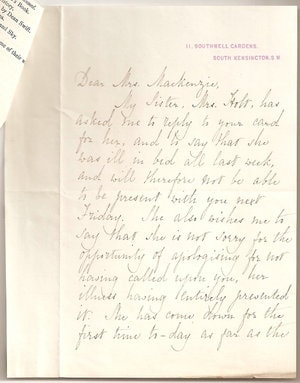 by Dean Swift,
11, SOUTHWELL GARDENS,
SOUTH KENSINGTON, S.W.
Dear Mrs. Mackenzie,
My Sister, Mrs. Holt, has
asked me to reply to your card
for her, and to say that she
was ill in bed all last week,
and will therefore not be able
to be present with you next
Friday. She also wishes me to
say that she is not sorry for the
opportunity of apologising for not
having called upon you, her
illness having entirely prevented
it. She has come down for the
first time to-day as far as the